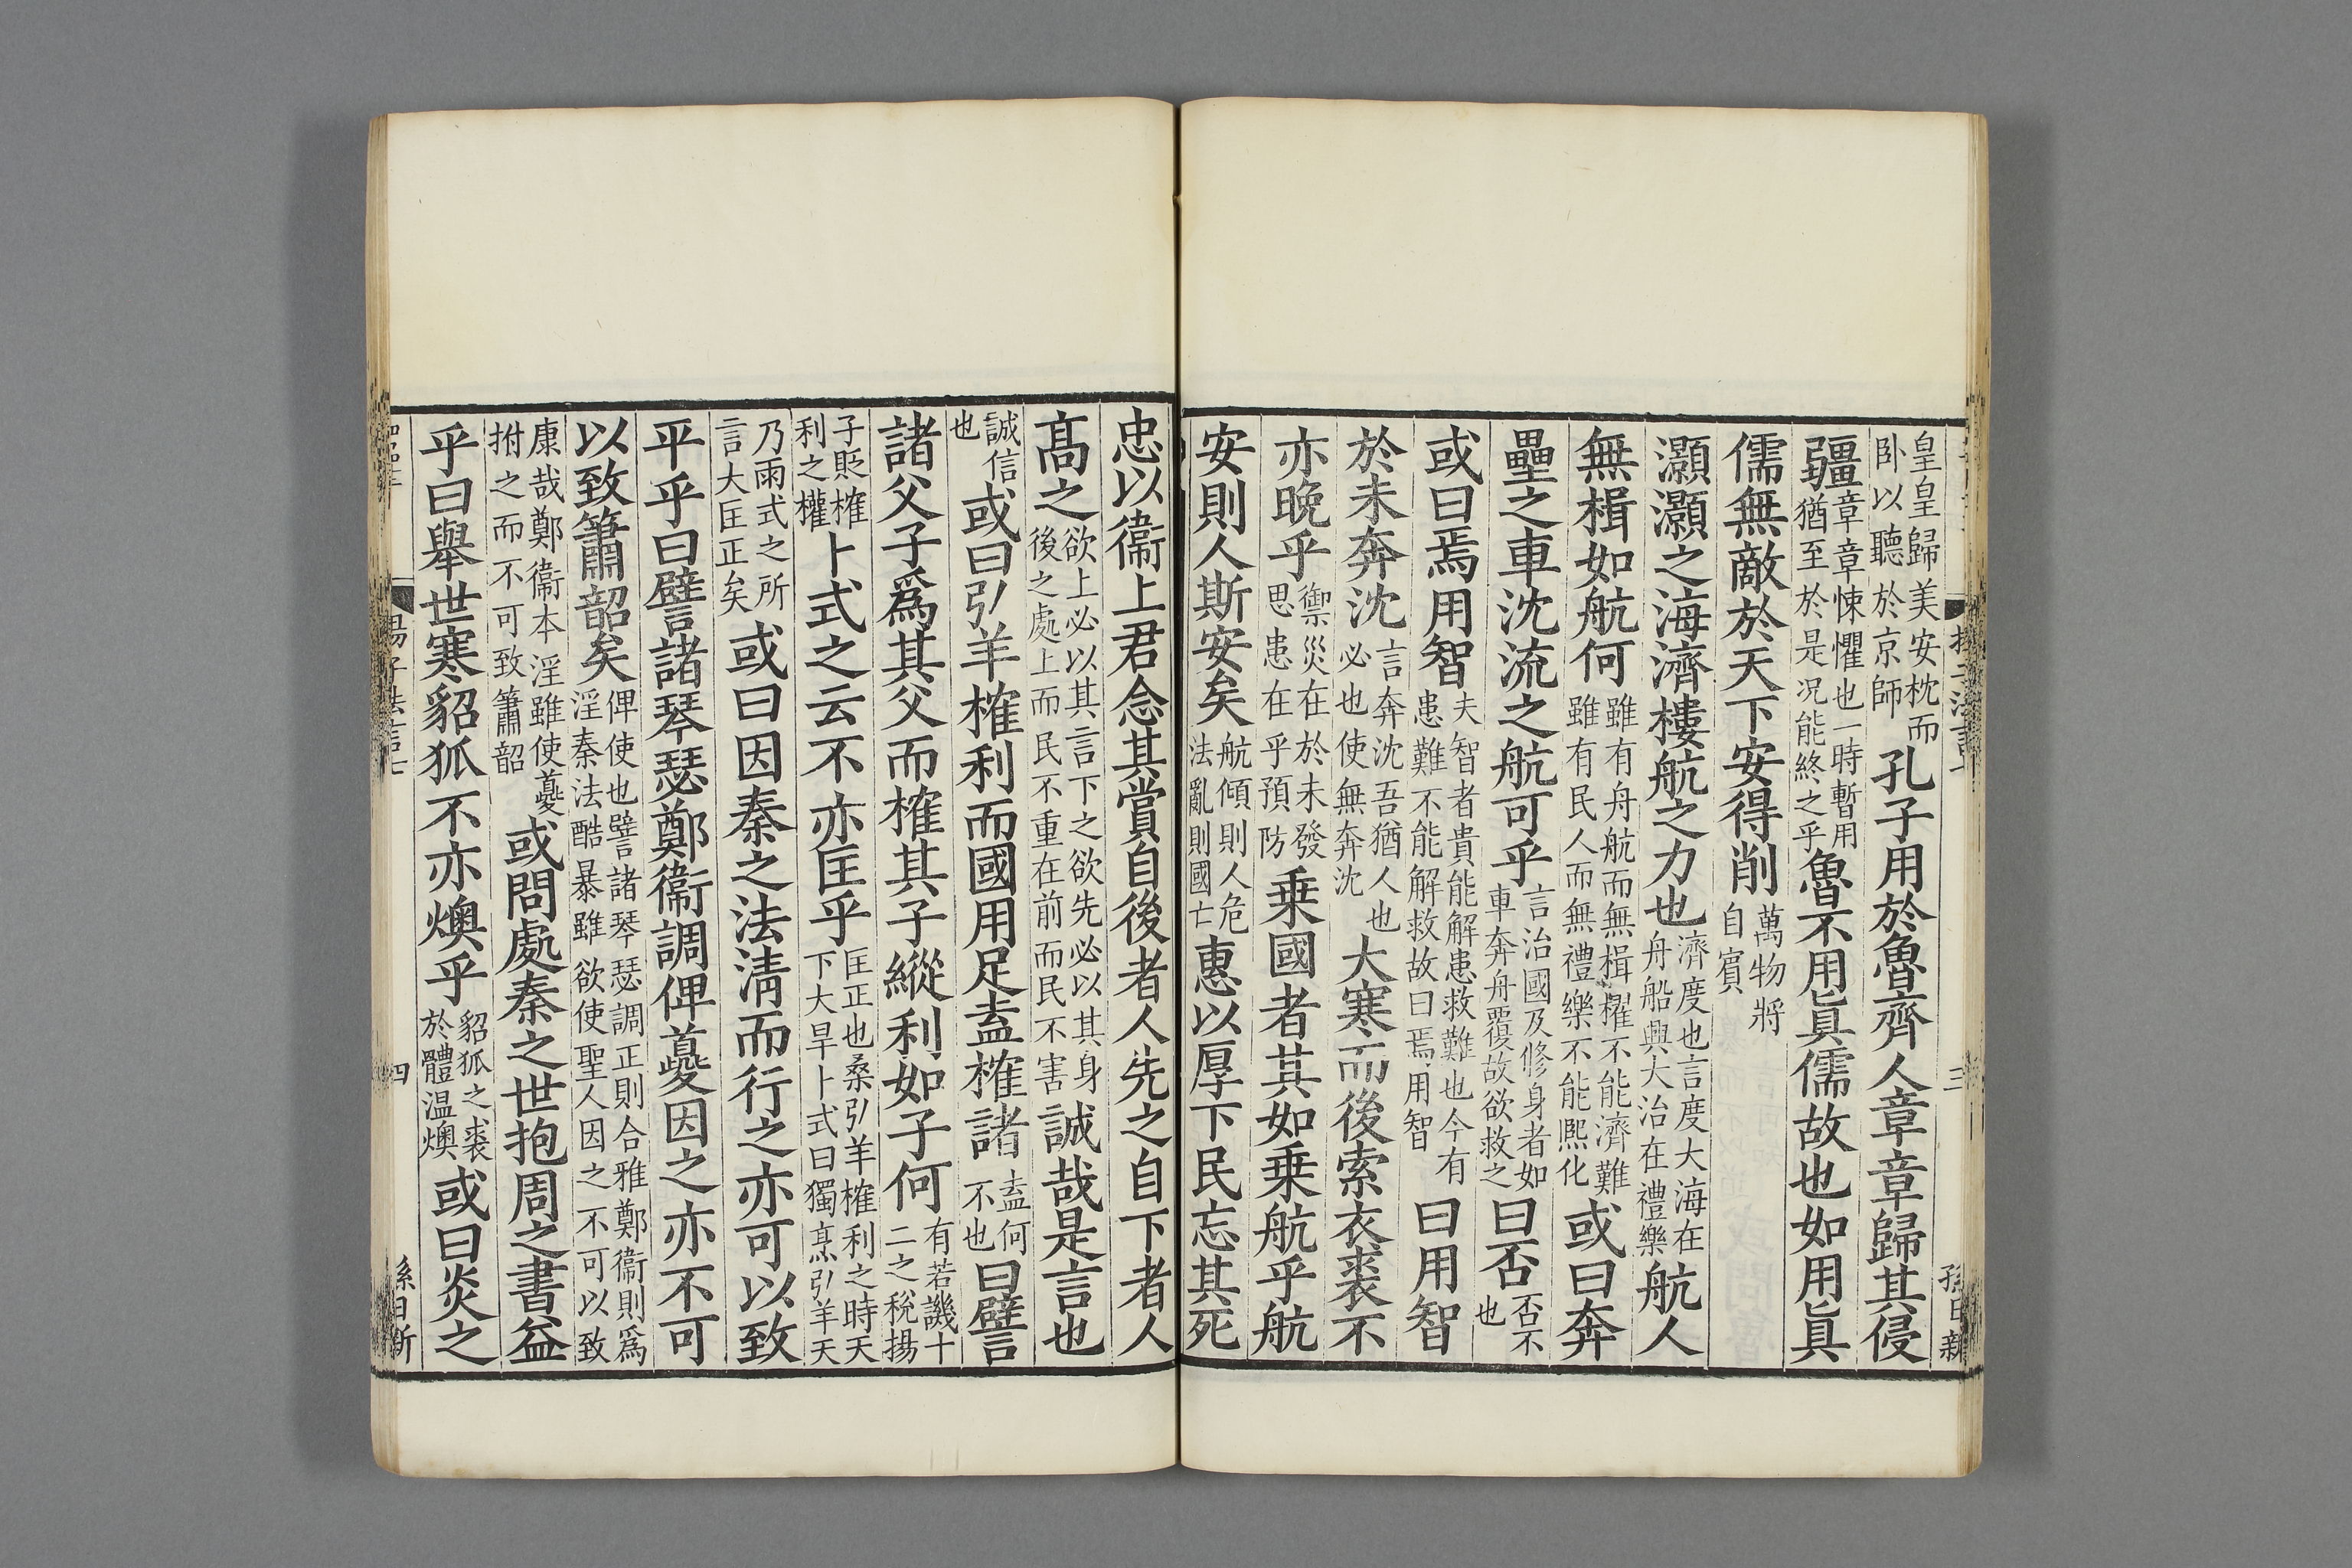 皇皇歸美安枕而卧以聽於京師孔子用於魯齊人章章歸其侵
疆章章悚懼也一時暫用猶至於是况能終之乎魯不用眞儒故也如用眞
儒無敵於天下安得削萬物將自賓
灝灝之海濟樓航之力也濟度也言度大海在舟船興大治在禮樂航人
無楫如航何雖有舟航而無楫櫂不能濟難雖有民人而無禮樂不能熈化或曰奔
壘之車沈流之航可乎言治國及修身者如車奔舟覆故欲救之曰否否不也
或曰焉用智夫智者貴能解患救難也今有患難不能解救故曰焉用智曰用智
於未奔沈言奔沈吾猶人也必也使無奔沈大寒而後索衣裘不
亦晚乎禦災在於未發思患在乎預防乗國者其如乗航乎航
安則人斯安矣航傾則人危法亂則國亡惠以厚下民忘其死
忠以衞上君念其賞自後者人先之自下者人
髙之欲上必以其言下之欲先必以其身後之處上而民不重在前而民不害誠哉是言也
誠信也或曰弘羊榷利而國用足盍榷諸盍何不也曰譬
諸父子爲其父而榷其子縱利如子何有若譏十二之稅揚
子貶榷利之權卜式之云不亦匡乎匡正也桑弘羊榷利之時天下大旱卜式曰獨烹弘羊天
乃雨式之所言大匡正矣或曰因秦之法淸而行之亦可以致
平乎曰譬諸琴瑟鄭衞調俾夔因之亦不可
以致簫韶矣俾使也譬諸琴瑟調正則合雅鄭衞則爲淫秦法酷暴雖欲使聖人因之不可以致
康哉鄭衞本淫雖使夔拊之而不可致簫韶或問處秦之世抱周之書益
乎曰舉世寒貂狐不亦燠乎貂狐之裘於體温燠或曰炎之
三
四